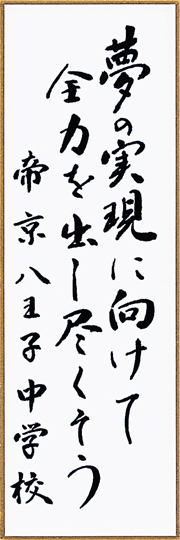 夢の実現に向けて
全力を出し尽くそう
帝京八王子中学校